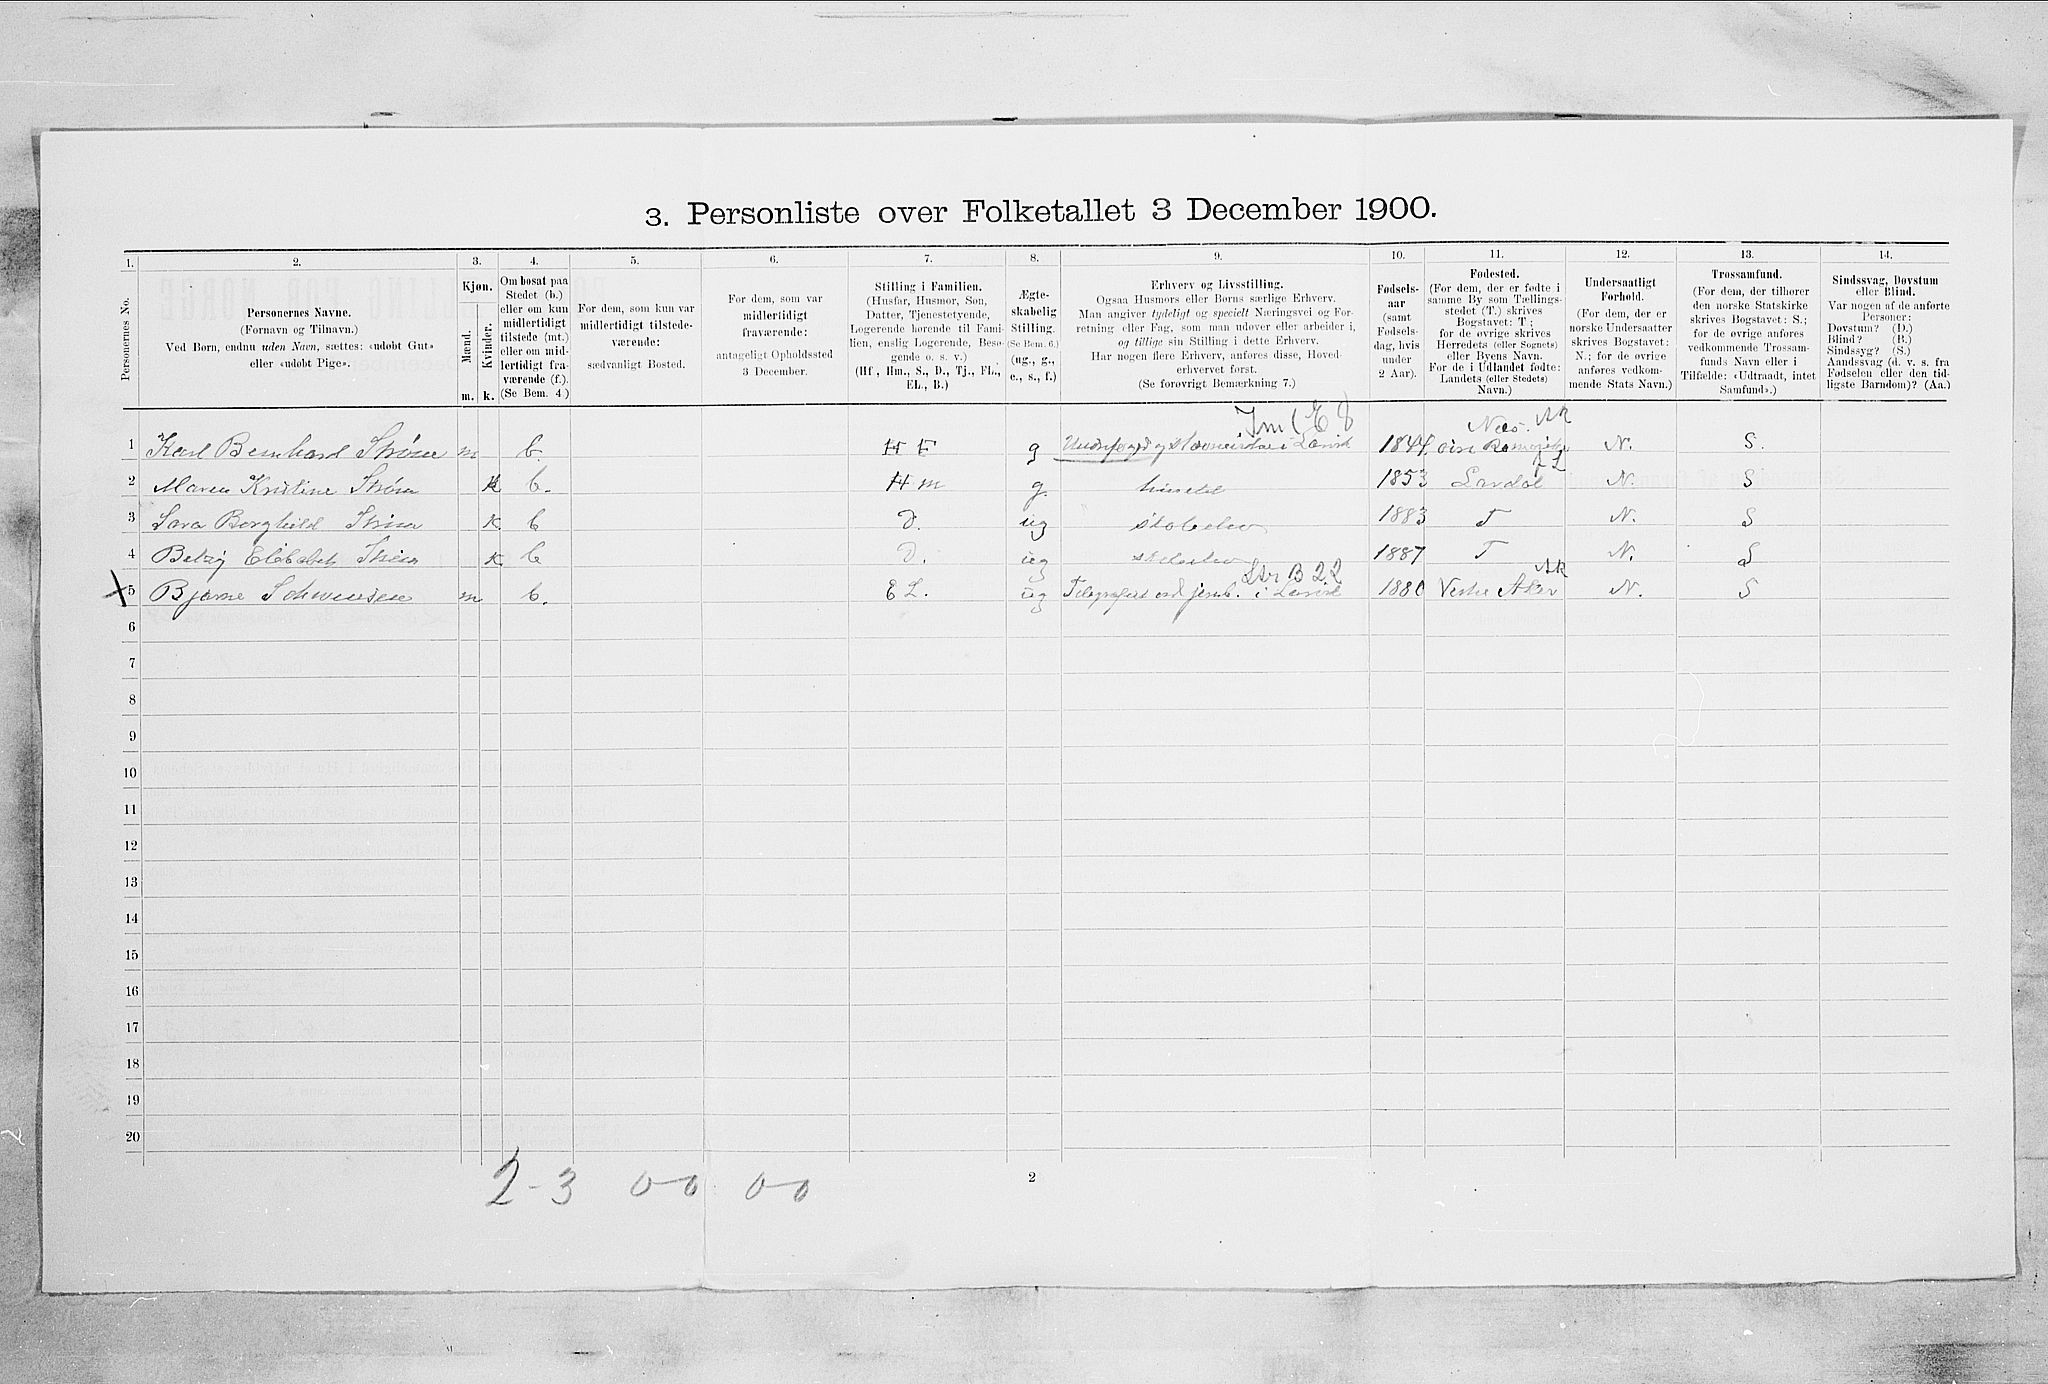 3. Personliste over Folketallet 3 December 1900.
1. 2. 3. 4. 5. 6. 7. 8. 9. 10. 11. 12. 13. 14.
Personernes No.
Personernes Navne.
(Fornavn og Tilnavn.)
Ved Børn, endnu uden Navn, sættes: «udøbt Gut»
eller «udøbt Pige».
Kjøn.
Mænd.
Kvinder.
m. k.
Om bosat paa
Stedet (b.)
eller om kun
midlertidigt
tilstede (mt.)
eller om mid-
lertidigt fra-
værende (f.).
(Se Bem. 4.)
For dem, som kun var
midlertidigt tilstede-
værende:
sædvanligt Bosted.
For dem, som var
midlertidigt
fraværende:
antageligt Opholdssted
3 December.
Stilling i Familien.
(Husfar, Husmor, Søn,
Datter, Tjenestetyende,
Logerende hørende til Fami-
lien, enslig Logerende, Besø-
gende o. s. v.)
(Hf., Hm., S., D., Tj., FL.,
EL., B.)
Ægte-
skabelig
Stilling.
(Se Bem. 6.)
(ug., g.,
e., s., f.)
Erhverv og Livsstilling.
Ogsaa Husmors eller Børns særlige Erhverv.
Man angiver tydeligt og specielt Næringsvei og For-
retning eller Fag, som man udøver eller arbeider i,
og tillige sin Stilling i dette Erhverv.
Har nogen flere Erhverv, anføres disse, Hoved-
erhvervet først.
(Se forøvrigt Bemærkning 7.)
Fødsels-
aar
(samt
Fødsels-
dag, hvis
under
2 Aar).
Fødested.
(For dem, der er fødte i
samme By som Tællings-
stedet (T.) skrives
Bogstavet: T;
for de øvrige skrives
Herredets (eller Sognets)
eller Byens Navn.
For de i Udlandet fødte:
Landets (eller Stedets)
Navn.)
Undersaatligt
Forhold.
(For dem, der er
norske Undersaatter
skrives Bogstavet:
N.; for de øvrige
anføres vedkom-
mende Stats Navn.)
Trossamfund.
(For dem, der tilhører
den norske Statskirke
skrives Bogstavet: S.;
for de øvrige anføres
vedkommende Trossam-
funds Navn eller i
Tilfælde: «Udtraadt, intet
Samfund».)
Sindssvag, Døvstum
eller Blind.
Var nogen af de anførte
Personer:
Døvstum? (D.)
Blind? (B.)
Sindssyg? (S.)
Aandssvag (d. v. s. fra
Fødselen eller den tid-
ligste Barndom)? (Aa.)
E 8 Næs. Ak
1 Karl Bernhard Strøm m b. H F g i Larvik 1844 N. S.
2 Maren Kristine Strøm k b. H m g. 1853 Lardal N. S
3 Sara Borghild Strøm k b D. ug skoleelev 1883 T N. S
4 Betzy Elisabet Strøm k b D. ug skoleelev 1887 T N. S
B 22 Ak
X 5 Bjarne Schwensen m b. E L. ug Telegrafist ved jernb. i Larvik 1880 Vestre Aker N. S
6
7
8
9
10
11
12
13
14
15
16
17
18
19
20
2-3 0-0 0-0
2